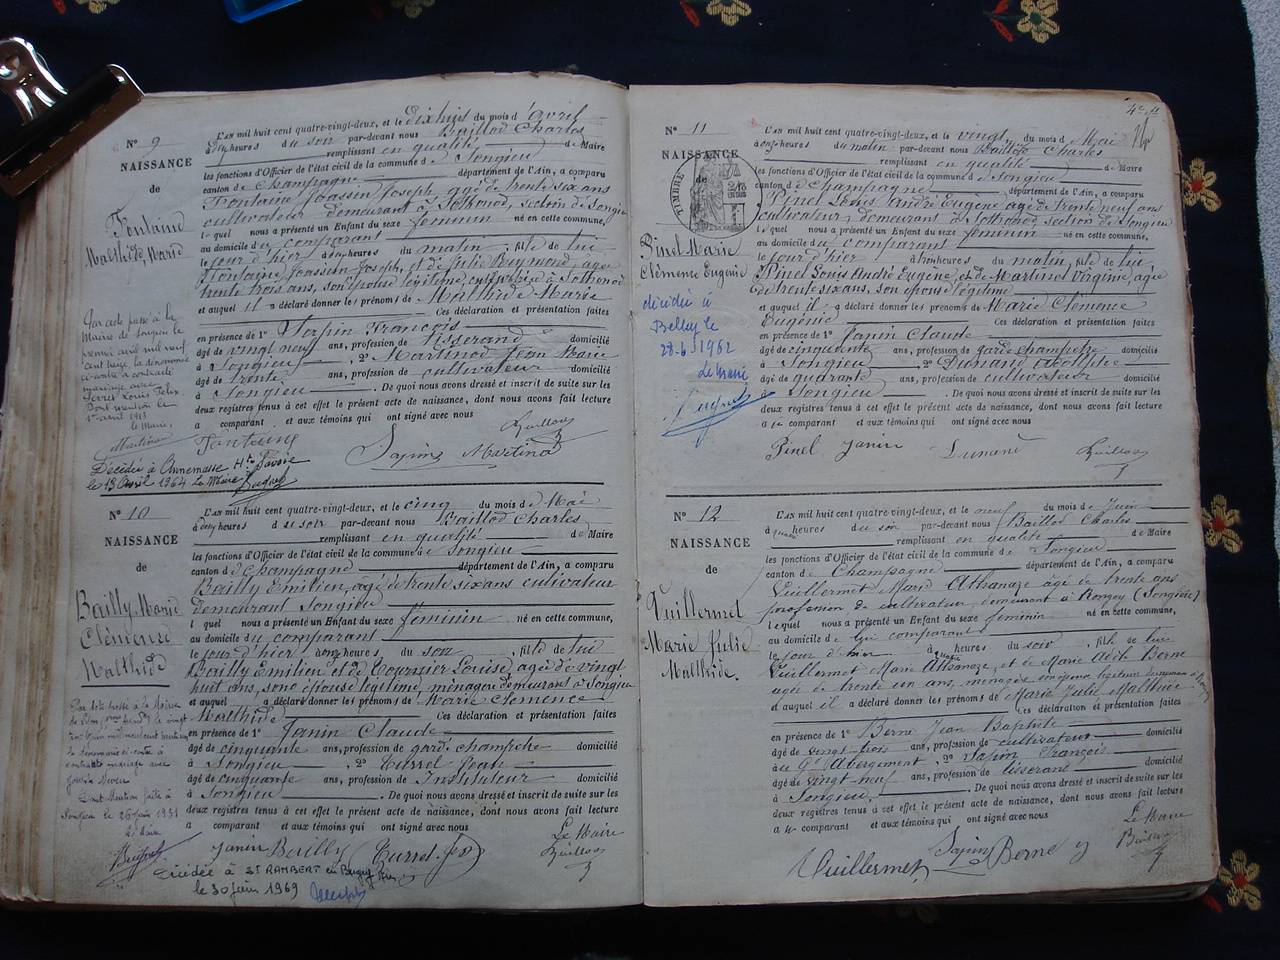 N° 9
NAISSANCE
de
Fontaine
Mathilde, Marie
L'AN mil huit cent quatre-vingt-deux, et le Dixhuit du mois d'avril
à heures du soir par-devant nous Baillod Charles
remplissant en qualité de Maire
les fonctions d'Officier de l'état civil de la commune de Songieu
canton de Champagne département de l'Ain, a comparu
Fontaine Joassin Joseph, agé de trente six ans
cultivateur demeurant à Sothonod, section de Songieu
lequel nous a présenté un Enfant du sexe féminin né en cette commune,
au domicile du comparant
le jour d'hier à heures du matin, fille de lui
Fontaine Joassin Joseph, et de Julie Reymond, agée
trente trois ans, son épouse légitime, cultivatrice à Sothonod
et auquel il a déclaré donner les prénoms de Mathilde Marie
Ces déclaration et présentation faites
en présence de 1° Serpin François
âgé de vingt neuf ans, profession de Tisserand domicilié
à Songieu, 2° Martinod Jean Marie
âgé de trente ans, profession de cultivateur domicilié
à Songieu. De quoi nous avons dressé et inscrit de suite sur les
deux registres tenus à cet effet le présent acte de naissance, dont nous avons fait lecture
a comparant et aux témoins qui ont signé avec nous
Par acte passé à la
Mairie de Songieu le
premier avril mil neuf
cent treize la dénommée
ci-contre a contracté
mariage avec
Félix
Dont mention le
1er avril 1913
le Maire,
Martinod
Fontaine Sapin Martinod Baillod
Décédée à Annemasse Hte Savoie
le 13 Avril 1964 Le Maire
N° 10
NAISSANCE
de
Bailly Marie
Clémence
Mathilde
L'AN mil huit cent quatre-vingt-deux, et le cinq du mois de Mai
à heures du soir par-devant nous Baillod Charles
remplissant en qualité de Maire
les fonctions d'Officier de l'état civil de la commune de Songieu
canton de Champagne département de l'Ain, a comparu
Bailly Emilien, agé de trente six ans cultivateur
demeurant Songieu
lequel nous a présenté un Enfant du sexe féminin né en cette commune,
au domicile du comparant
le jour d'hier à onze heures du soir, fille de lui
Bailly Emilien et de Tournier Louise, agée de vingt
huit ans, son épouse légitime, ménagère demeurant à Songieu
et auquel a déclaré donner les prénoms de Marie Clémence
Mathilde Ces déclaration et présentation faites
en présence de 1° Janin Claude
âgé de cinquante ans, profession de garde champêtre domicilié
à Songieu, 2° Turrel Jean
âgé de cinquante ans, profession de Instituteur domicilié
à Songieu. De quoi nous avons dressé et inscrit de suite sur les
deux registres tenus à cet effet le présent acte de naissance, dont nous avons fait lecture
a comparant et aux témoins qui ont signé avec nous
la dénommée ci-contre a
contracté mariage avec
Dont Mention faite à
Songieu le 26 juin 1931
Le Maire
Le Maire
Janin Bailly Turrel Baillod
Décédée à ST RAMBERT en Bugey Ain
le 30 juin 1969
4e f.
N° 11
NAISSANCE
de
TIMBRE
Pinel Marie
Clémence Eugénie
L'AN mil huit cent quatre-vingt-deux, et le vingt du mois de Mai
à onze heures du matin par-devant nous Baillod Charles
remplissant en qualité de Maire
les fonctions d'Officier de l'état civil de la commune de Songieu
canton de Champagne département de l'Ain, a comparu
Pinel Louis André Eugène agé de trente neuf ans
cultivateur, demeurant à Sothonod section de Songieu
lequel nous a présenté un Enfant du sexe féminin né en cette commune,
au domicile du comparant
le jour d'hier à heures du matin, fille de lui
Pinel Louis André Eugène, et de Martinet Virginie, agée
de trente six ans, son épouse légitime
et auquel il a déclaré donner les prénoms de Marie Clémence
Eugénie Ces déclaration et présentation faites
en présence de 1° Janin Claude
âgé de cinquante ans, profession de garde champêtre domicilié
à Songieu, 2° Dunand Adolphe
âgé de quarante ans, profession de cultivateur domicilié
à Songieu. De quoi nous avons dressé et inscrit de suite sur les
deux registres tenus à cet effet le présent acte de naissance, dont nous avons fait lecture
a comparant et aux témoins qui ont signé avec nous
décédée à
Belley le
28-6-1962
Le Maire
Pinel Janin Dunand Baillod
N° 12
NAISSANCE
de
Vuillermet
Marie Julie
Mathilde.
L'AN mil huit cent quatre-vingt-deux, et le neuf du mois de Juin
à quatre heures du soir par-devant nous Baillod Charles
remplissant en qualité de Maire
les fonctions d'Officier de l'état civil de la commune de Songieu
canton de Champagne département de l'Ain, a comparu
Vuillermet Marie Athanaze âgé de trente ans
profession de cultivateur, demeurant à (Songieu)
lequel nous a présenté un Enfant du sexe féminin né en cette commune,
au domicile de lui comparant
le jour d'hier à quatre heures du soir, fille de lui
Vuillermet Marie Athanaze, et de Marie Adèle Berne
agée de trente un ans, ménagère son épouse légitime
et auquel il a déclaré donner les prénoms de Marie Julie Mathilde
Ces déclaration et présentation faites
en présence de 1° Berne Jean Baptiste
âgé de vingt trois ans, profession de cultivateur domicilié
au Gd Abergement, 2° Sapin François
âgé de vingt neuf ans, profession de tisserand domicilié
à Songieu. De quoi nous avons dressé et inscrit de suite sur les
deux registres tenus à cet effet le présent acte de naissance, dont nous avons fait lecture
a comparant et aux témoins qui ont signé avec nous
Le Maire
Vuillermet Sapin Berne Baillod